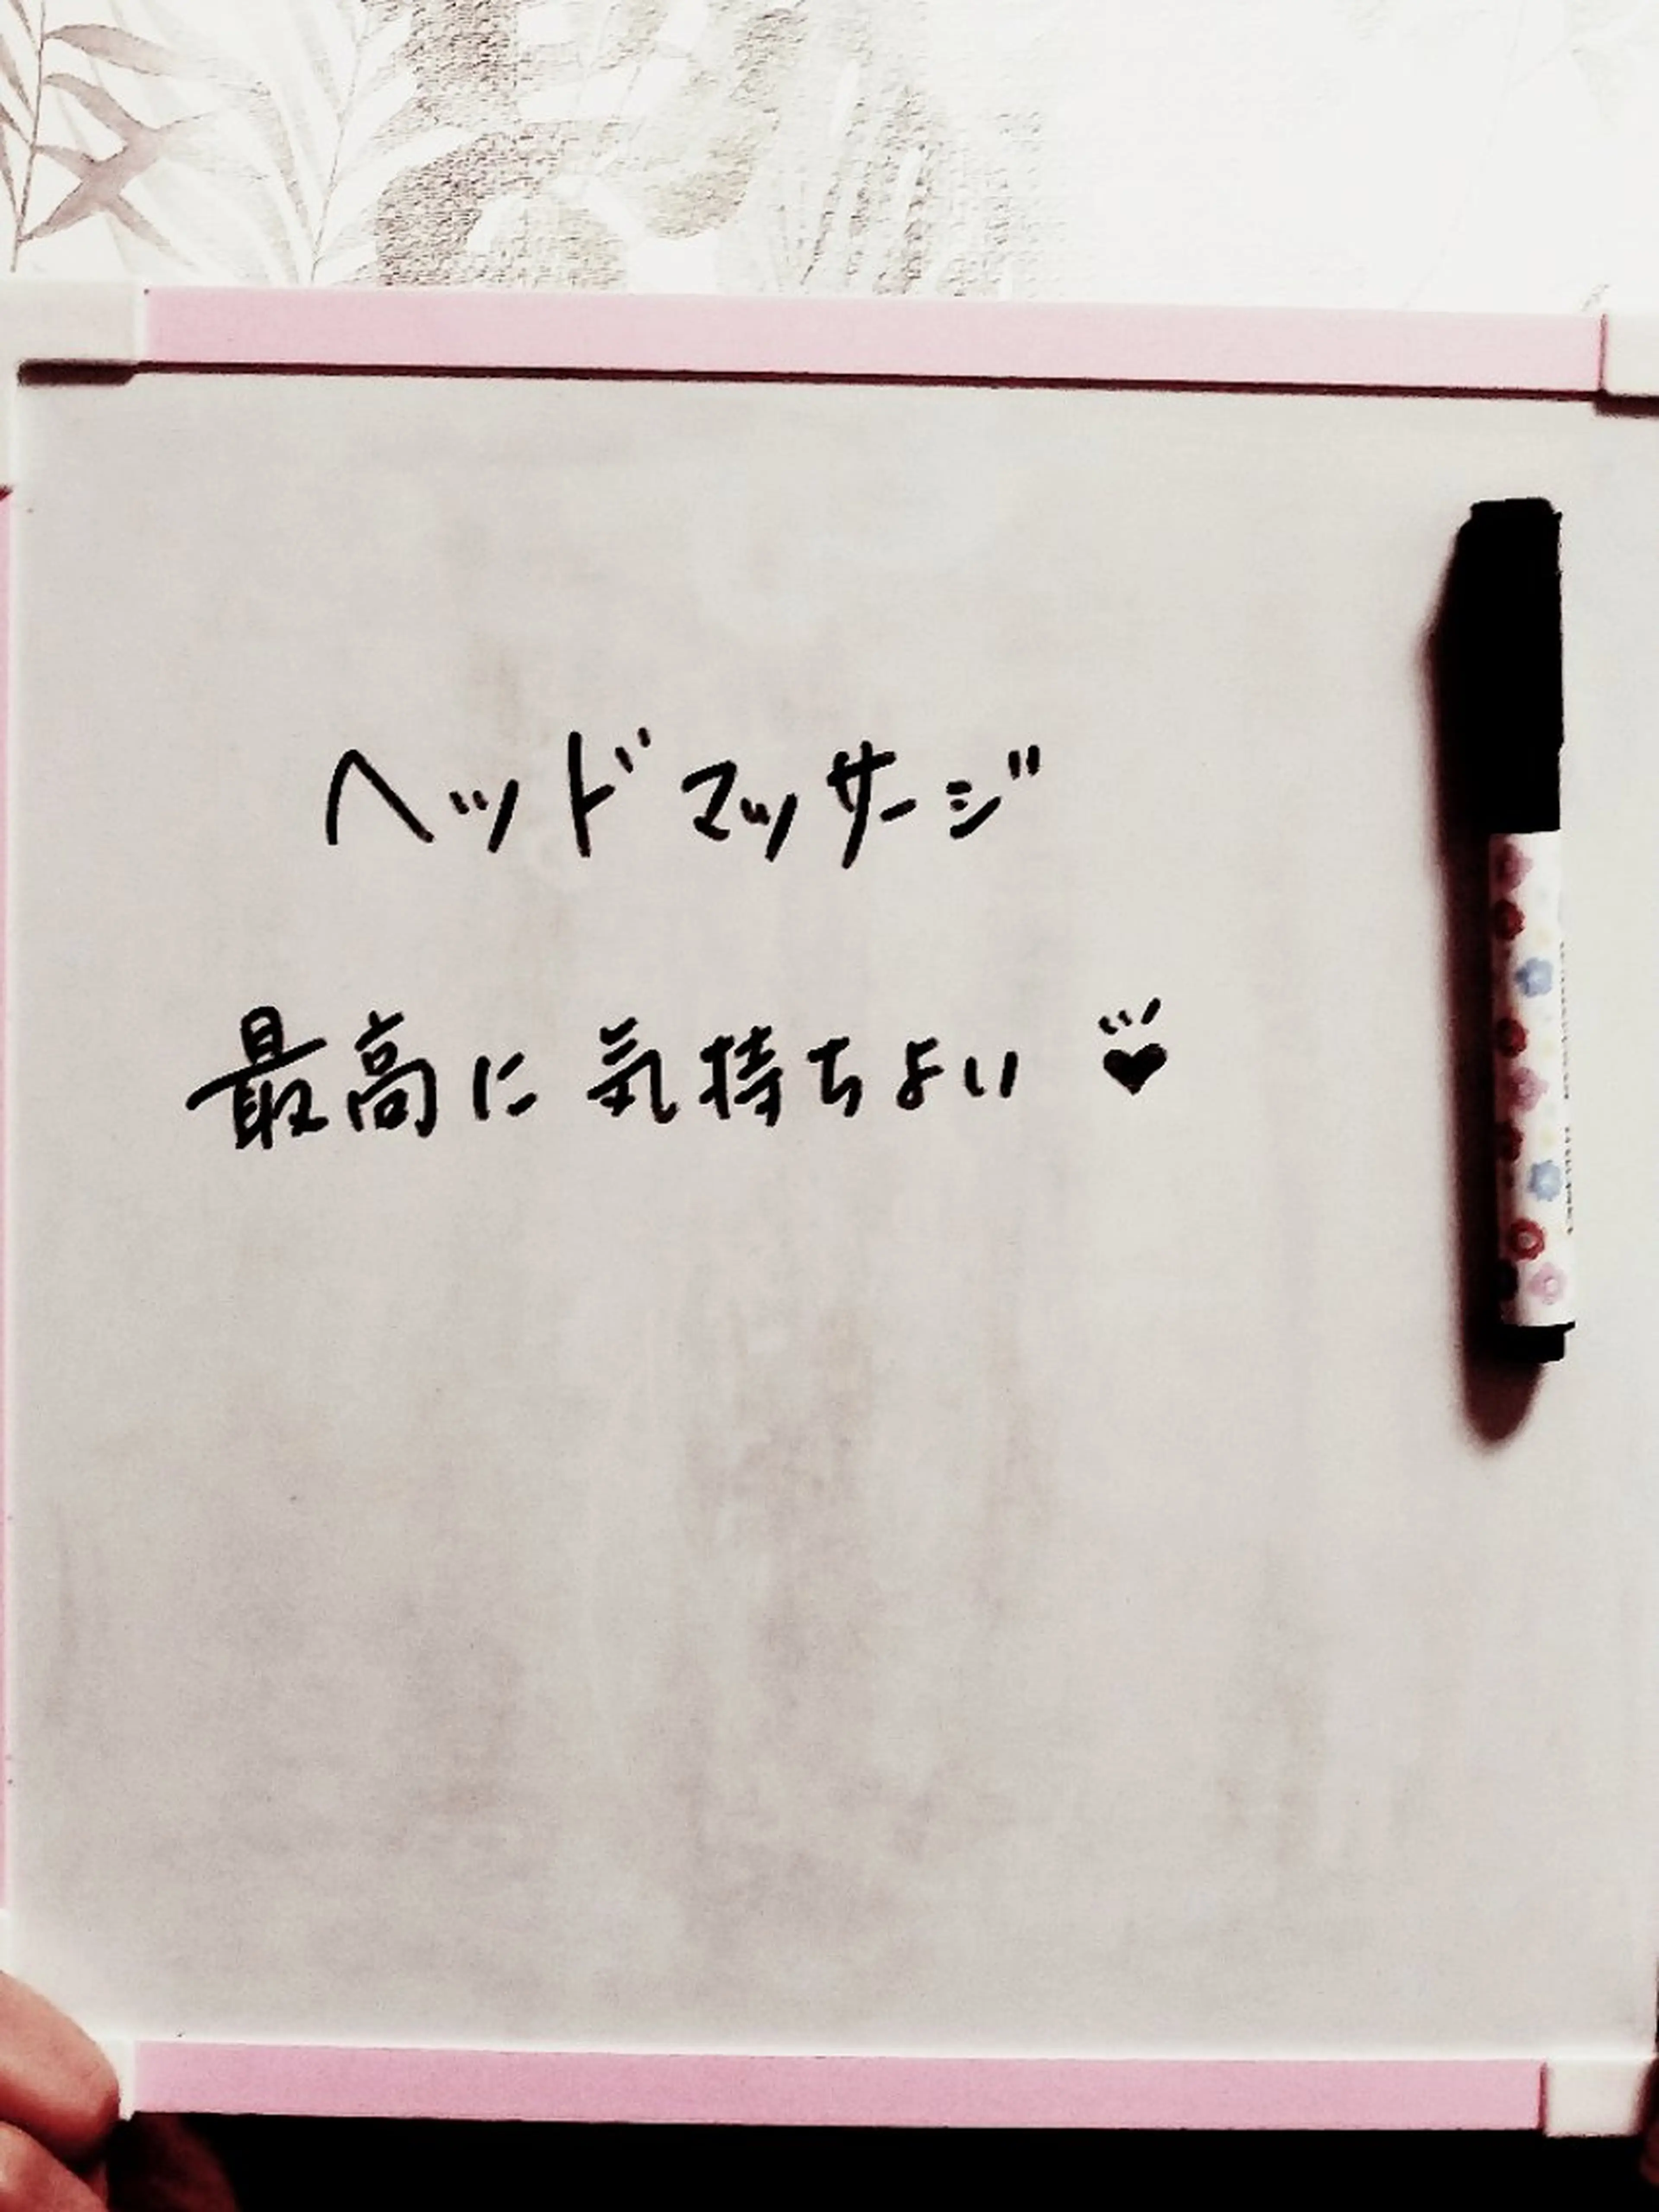 ヘッドマッサージ
最高に気持ちよい♥